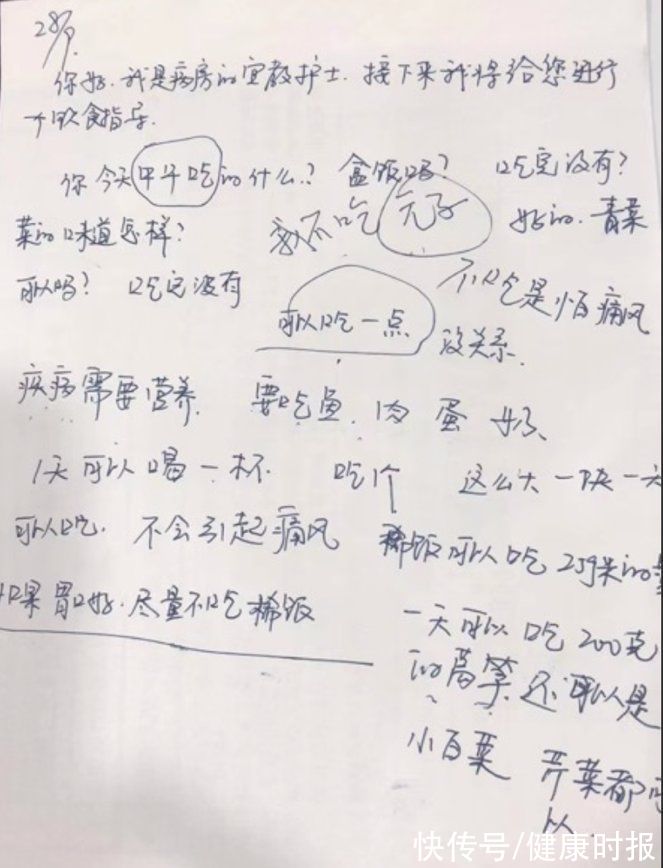 28/9
你好.我是病房的宣教护士.接下来我将给您进行
一个饮食指导.
你今天中午吃的什么? 盒饭吗? 吃完没有?
菜的味道怎样? 我不吃 元子 好的.青菜
可以吗? 吃完没有 不吃是怕痛风
可以吃一点 没关系.
疾病需要营养. 要吃鱼.肉 蛋 奶.
1天可以喝一杯 吃1个 这么大一块一天
可以吃. 不会引起痛风 稀饭可以吃 25g米的
如果胃口好.尽量不吃稀饭
一天可以吃200克
的莴笋还可以是
小白菜 芹菜都可
以.
快传号/健康时报